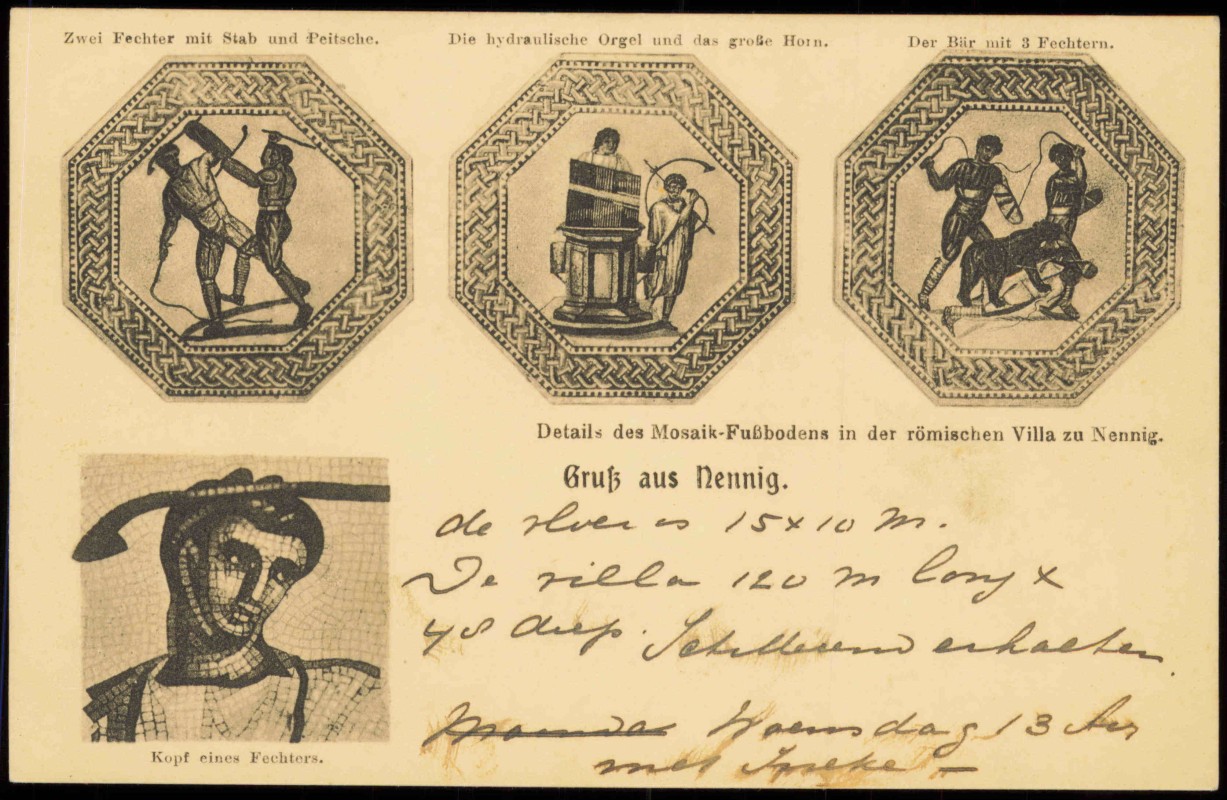 Zwei Fechter mit Stab und Peitsche.
Die hydraulische Orgel und das große Horn.
Der Bär mit 3 Fechtern.
Details des Mosaik-Fußbodens in der römischen Villa zu Nennig.
Gruß aus Nennig.
de vloer is 15 x 10 M.
De villa 120 m lang x
48 diep. erhalten
Woensdag 13
met
Kopf eines Fechters.